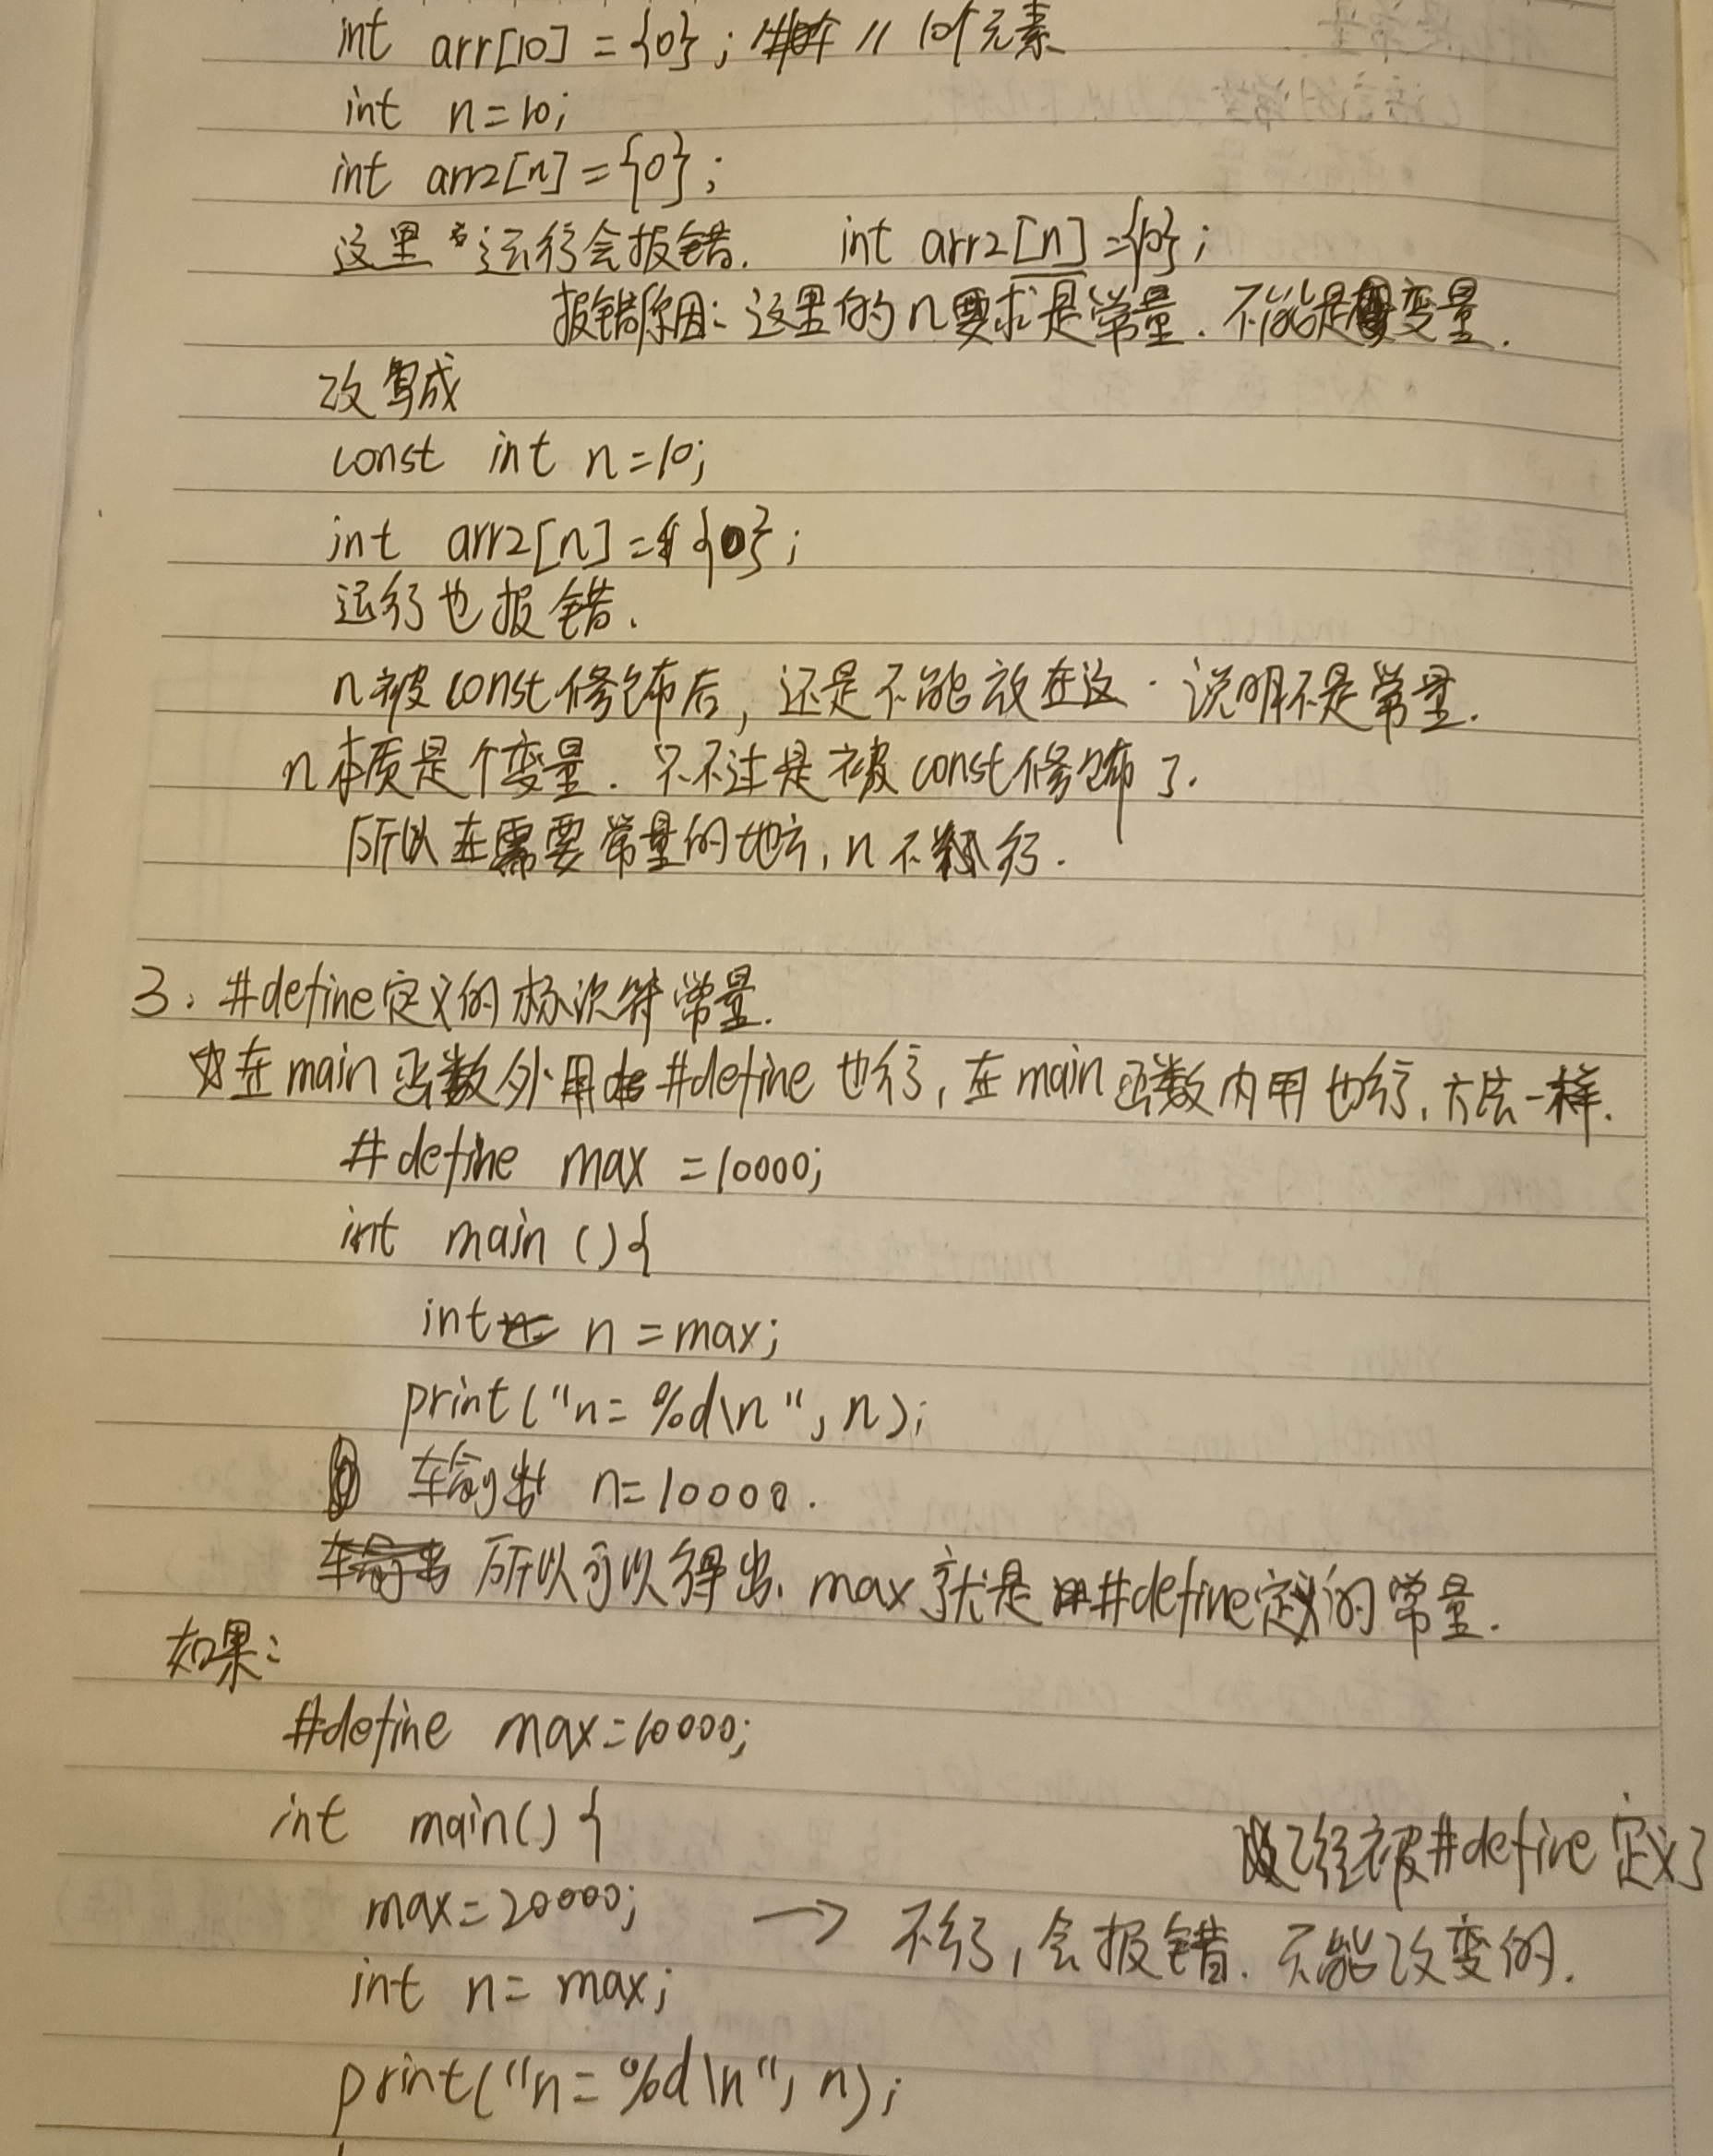 int arr[10] = {0}; // 10个元素
int n=10;
int arr2[n]={0};
这里 运行会报错. int arr2[n]={0};
报错原因: 这里的n要求是常量. 不能是变量.
改写成
const int n=10;
int arr2[n]={0};
运行也报错.
n被const修饰后, 还是不能放在这. 说明不是常量.
n本质是个变量. 只不过是被const修饰了.
所以在需要常量的地方, n不行.
3. #define定义的标识符常量.
在main函数外用#define也行, 在main函数内用也行, 方法一样.
#define max =10000;
int main (){
int n =max;
print("n= %d\n", n);
输出 n=10000.
所以可以得出. max就是#define定义的常量.
如果:
#define max=10000;
int main(){
已经被#define定义了
max=20000; → 不行, 会报错. 不能改变的.
int n= max;
print("n= %d\n", n);